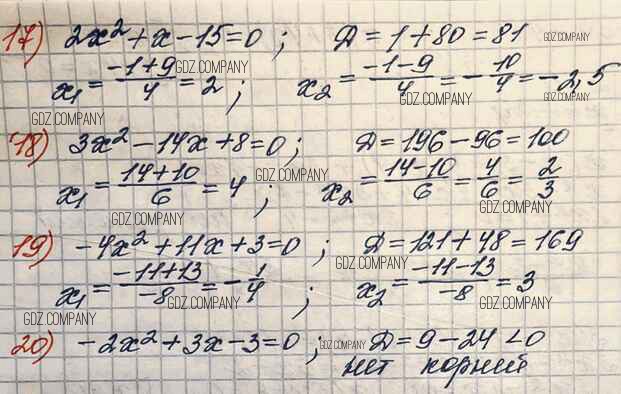 17) 2x² + x − 15 = 0 ; Д = 1 + 80 = 81 GDZ.COMPANY
x₁ = (−1+9)/4 = 2 ; GDZ.COMPANY x₂ = (−1−9)/4 = −10/4 = −2,5
GDZ.COMPANY GDZ.COMPANY GDZ.COMPANY
18) 3x² − 14x + 8 = 0 ; Д = 196 − 96 = 100
x₁ = (14+10)/6 = 4 ; GDZ.COMPANY x₂ = (14−10)/6 = 4/6 = 2/3
GDZ.COMPANY GDZ.COMPANY
19) −4x² + 11x + 3 = 0 ; Д = 121 + 48 = 169
GDZ.COMPANY
x₁ = (−11+13)/−8 = −1/4 ; x₂ = (−11−13)/−8 = 3
GDZ.COMPANY GDZ.COMPANY
GDZ.COMPANY
20) −2x² + 3x − 3 = 0 ; GDZ.COMPANY Д = 9 − 24 < 0
нет корней